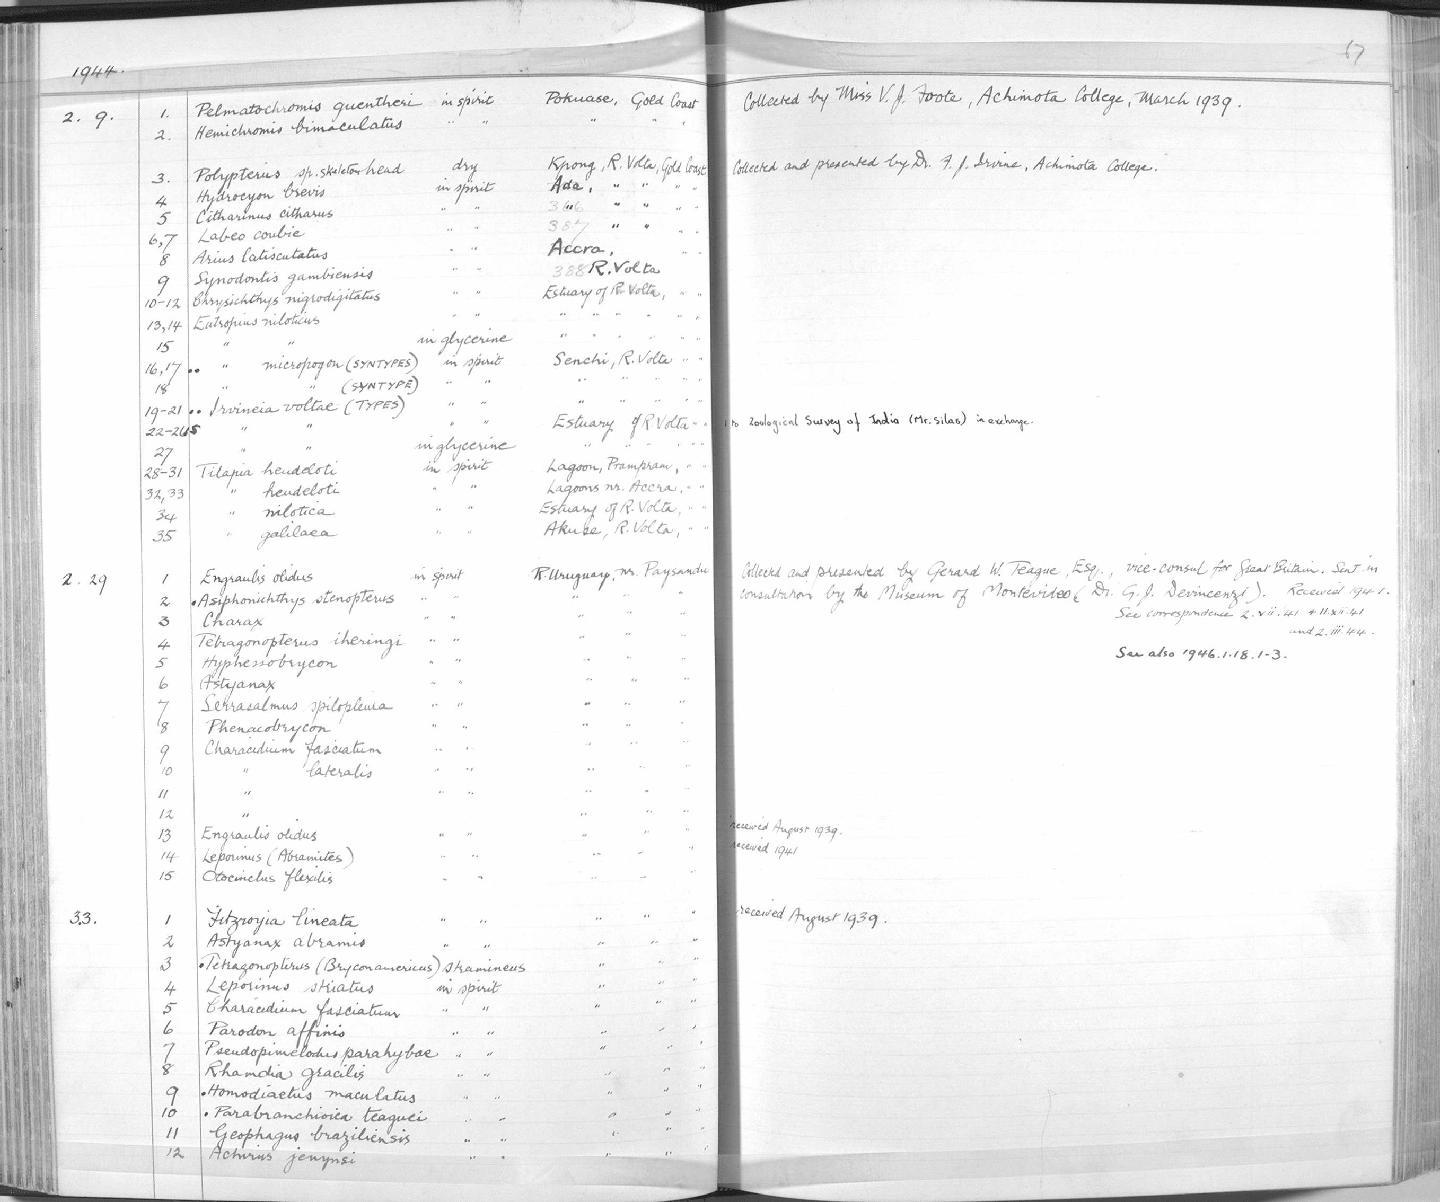 1944.
67
2. 9. 1. Pelmatochromis guentheri in spirit Pokuase, Gold Coast Collected by Miss V. J. Foote, Achimota College, March 1939.
2. Hemichromis bimaculatus " " " " "
3. Polypterus sp. skeleton head dry Kpong, R. Volta, Gold Coast Collected and presented by Dr. F. J. Irvine, Achimota College.
4 Hydrocyon brevis in spirit Ada, " " " "
5 Citharinus citharus " " 366 " " " "
6,7 Labeo coubie " " 387 " " " "
8 Arius latiscutatus " " Accra, " "
9 Synodontis gambiensis " " 388 R. Volta
10-12 Chrysichthys nigrodigitatus " " Estuary of R. Volta, " "
13,14 Eutropius niloticus " " " " " " "
15 " " in glycerine " " " " "
16,17 .. " micropogon (SYNTYPES) in spirit Senchi, R. Volta " "
18 " " (SYNTYPE) " " " " " " "
19-21 .. Irvineia voltae (TYPES) " " " " " " "
22-26 " " " " Estuary of R Volta " " to Zoological Survey of India (Mr. Silas) in exchange.
27 " " in glycerine " " " " "
28-31 Tilapia heudeloti in spirit Lagoon, Prampram, " "
32,33 " heudeloti " " Lagoons nr. Accra, " "
34 " nilotica " " Estuary of R. Volta, " "
35 " galilaea " " Akuse, R. Volta, " "
2. 29 1 Engraulis olidus in spirit R. Uruguay, nr. Paysandu Collected and presented by Gerard W. Teague, Esq., vice-consul for Great Britain. Sent in
2 .Asiphonichthys stenopterus " " " " " consultation by the Museum of Montevideo (Dr. G. J. Devincenzi). Received 1941.
3 Charax " " " " " See correspondence 2.xii.41 + 11.xii.41
4 Tetragonopterus iheringi " " " " " and 2.iii.44.
5 Hyphessobrycon " " " " " See also 1946.1.18.1-3.
6 Astyanax " " " " "
7 Serrasalmus spilopleura " " " " "
8 Phenacobrycon " " " " "
9 Characidium fasciatum " " " " "
10 " lateralis " " " " "
11 " " " " " "
12 " " " "
13 Engraulis olidus " " " " " received August 1939.
14 Leporinus (Abramites) " " " " " received 1941
15 Otocinclus flexilis " " " " "
3.3. 1 Fitzroyia lineata " " " " " received August 1939.
2 Astyanax abramis " " " " "
3 .Tetragonopterus (Bryconamericus) stramineus " "
4 Leporinus striatus in spirit " "
5 Characidium fasciatum " " " " "
6 Parodon affinis " " " " "
7 Pseudopimelodus parahybae " " " " "
8 Rhamdia gracilis " " " " "
9 .Homodiaetus maculatus " " " " "
10 .Parabranchioica teaguei " " " " "
11 Geophagus braziliensis " " " " "
12 Achirus jenynsi " " " " "